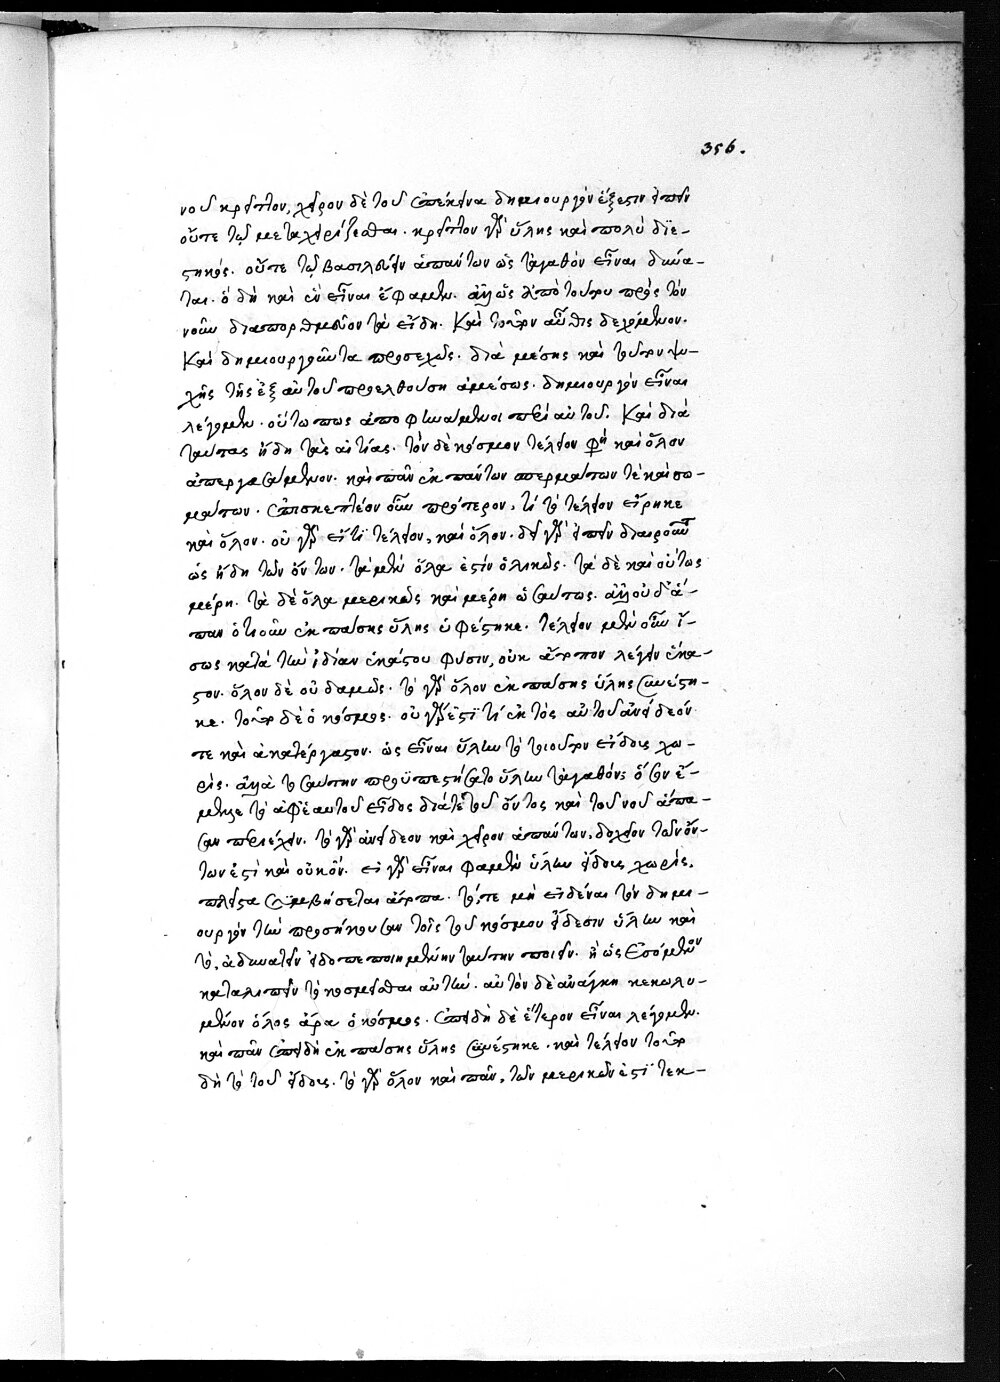 356.
νου κρεῖττον, χεῖρον δὲ τοῦ ἐπέκεινα δημιουργὸν ἔξεστιν εἰπεῖν
οὔτε τῷ μεταχειρίζεσθαι. κρεῖττον γὰρ ὕλης καὶ πολὺ διε-
στηκός. οὔτε τῷ βασιλεῦειν ἁπάντων ὡς τἀγαθὸν εἶναι δύνα-
ται. ὁ δὴ καὶ ἓν εἶναι ἔφαμεν. ἀλλ' ὡς ἀπὸ τούτου πρὸς τὸν
νοῦν διαπορθμεῦον τὰ εἴδη. καὶ τοῦτον αὖθις δεχόμενον.
καὶ δημιουργοῦντα προσεχῶς. διὰ μέσης καὶ τούτου ψυ-
χῆς τῆς ἐξ αὐτοῦ προελθούση ἀμέσως. δημιουργὸν εἶναι
λέγομεν. οὕτω πως ἀποφαινάμενοι περὶ αὐτοῦ. καὶ διὰ
ταύτας ἤδη τὰς αἰτίας. τὸν δὲ κόσμον τέλειον φησὶ καὶ ὅλον
ἀπεργασάμενον. καὶ πᾶν ἐκ πάντων σπερμάτων τὲ καὶ σω-
μάτων. ἐπισκεπτέον οὖν πρότερον, τί τὸ τέλειον εἴρηκε
καὶ ὅλον. οὐ γὰρ εἴ τι τέλειον, καὶ ὅλον. δεῖ γὰρ εἰπεῖν διαιροῦντας
ὡς ἤδη τῶν ὄντων. τὰ μὲν ὅλα ἐστὶν ὁλικῶς. τὰ δὲ καὶ οὕτως
μέρη. τὰ δὲ ὅλα μερικῶς καὶ μέρη ὡσαύτως. ἀλλ' οὐδ' ἅ-
παν ὁτιοῦν ἐκ πάσης ὕλης ὑφέστηκε. τέλειον μὲν οὖν ἴ-
σως κατὰ τὴν ἰδίαν ἑκάστου φύσιν, οὐκ ἄτοπον λέγειν ἕκα-
στον. ὅλον δὲ οὐδαμῶς. τὸ γὰρ ὅλον ἐκ πάσης ὕλης συνέστη-
κε. τοῦτο δὲ ὁ κόσμος. οὐ γὰρ ἔστί τι ἐκτὸς αὐτοῦ ἀνείδεόν
τε καὶ ἀκατέργαστον. ὡς εἶναι ὕλην τὸ τοιοῦτον εἴδους χω-
ρίς. ἀλλὰ ταύτην προϋπεστήσατο ὕλην τἀγαθόν· ὅσον ἔ-
μελλε τὸ ἀφ' ἑαυτοῦ εἶδος διά τε τοῦ ὄντος καὶ τοῦ νοῦ ἅπα-
σαν περιέχειν. τὸ γὰρ ἀνείδεον καὶ χεῖρον ἁπάντων, δοχεῖον τῶν ὄν-
των ἐστὶ καὶ οὐκ ὄν. εἰ γὰρ εἶναι φαμεν ὕλην εἴδους χωρίς,
πλεῖστα συμβήσεται ἄτοπα. τό, τε μὴ εἰδέναι τὸν δημι-
ουργὸν τὴν προσήκουσαν τοῖς τοῦ κόσμου εἴδεσιν ὕλην καὶ
τὸ, ἀδυνατεῖν εἰδοπεποιημένην ταύτην ποιεῖν. ἢ ὡς ἐσόμενον
καταλιπεῖν τὸ κοσμεῖσθαι αὐτήν. αὐτὸν δὲ ἀνάγκη κεκωλυ-
μένον ὅλος ἄρα ὁ κόσμος. ἐπειδὴ δὲ ἕτερον εἶναι λέγομεν.
καὶ πᾶν ἐπειδὴ ἐκ πάσης ὕλης συνέστηκε. καὶ τέλειον τοῦτο
δὴ τὸ τοῦ εἴδους. τὸ γὰρ ὅλον καὶ πᾶν, τῶν μερικῶν ἐστί τεκ-